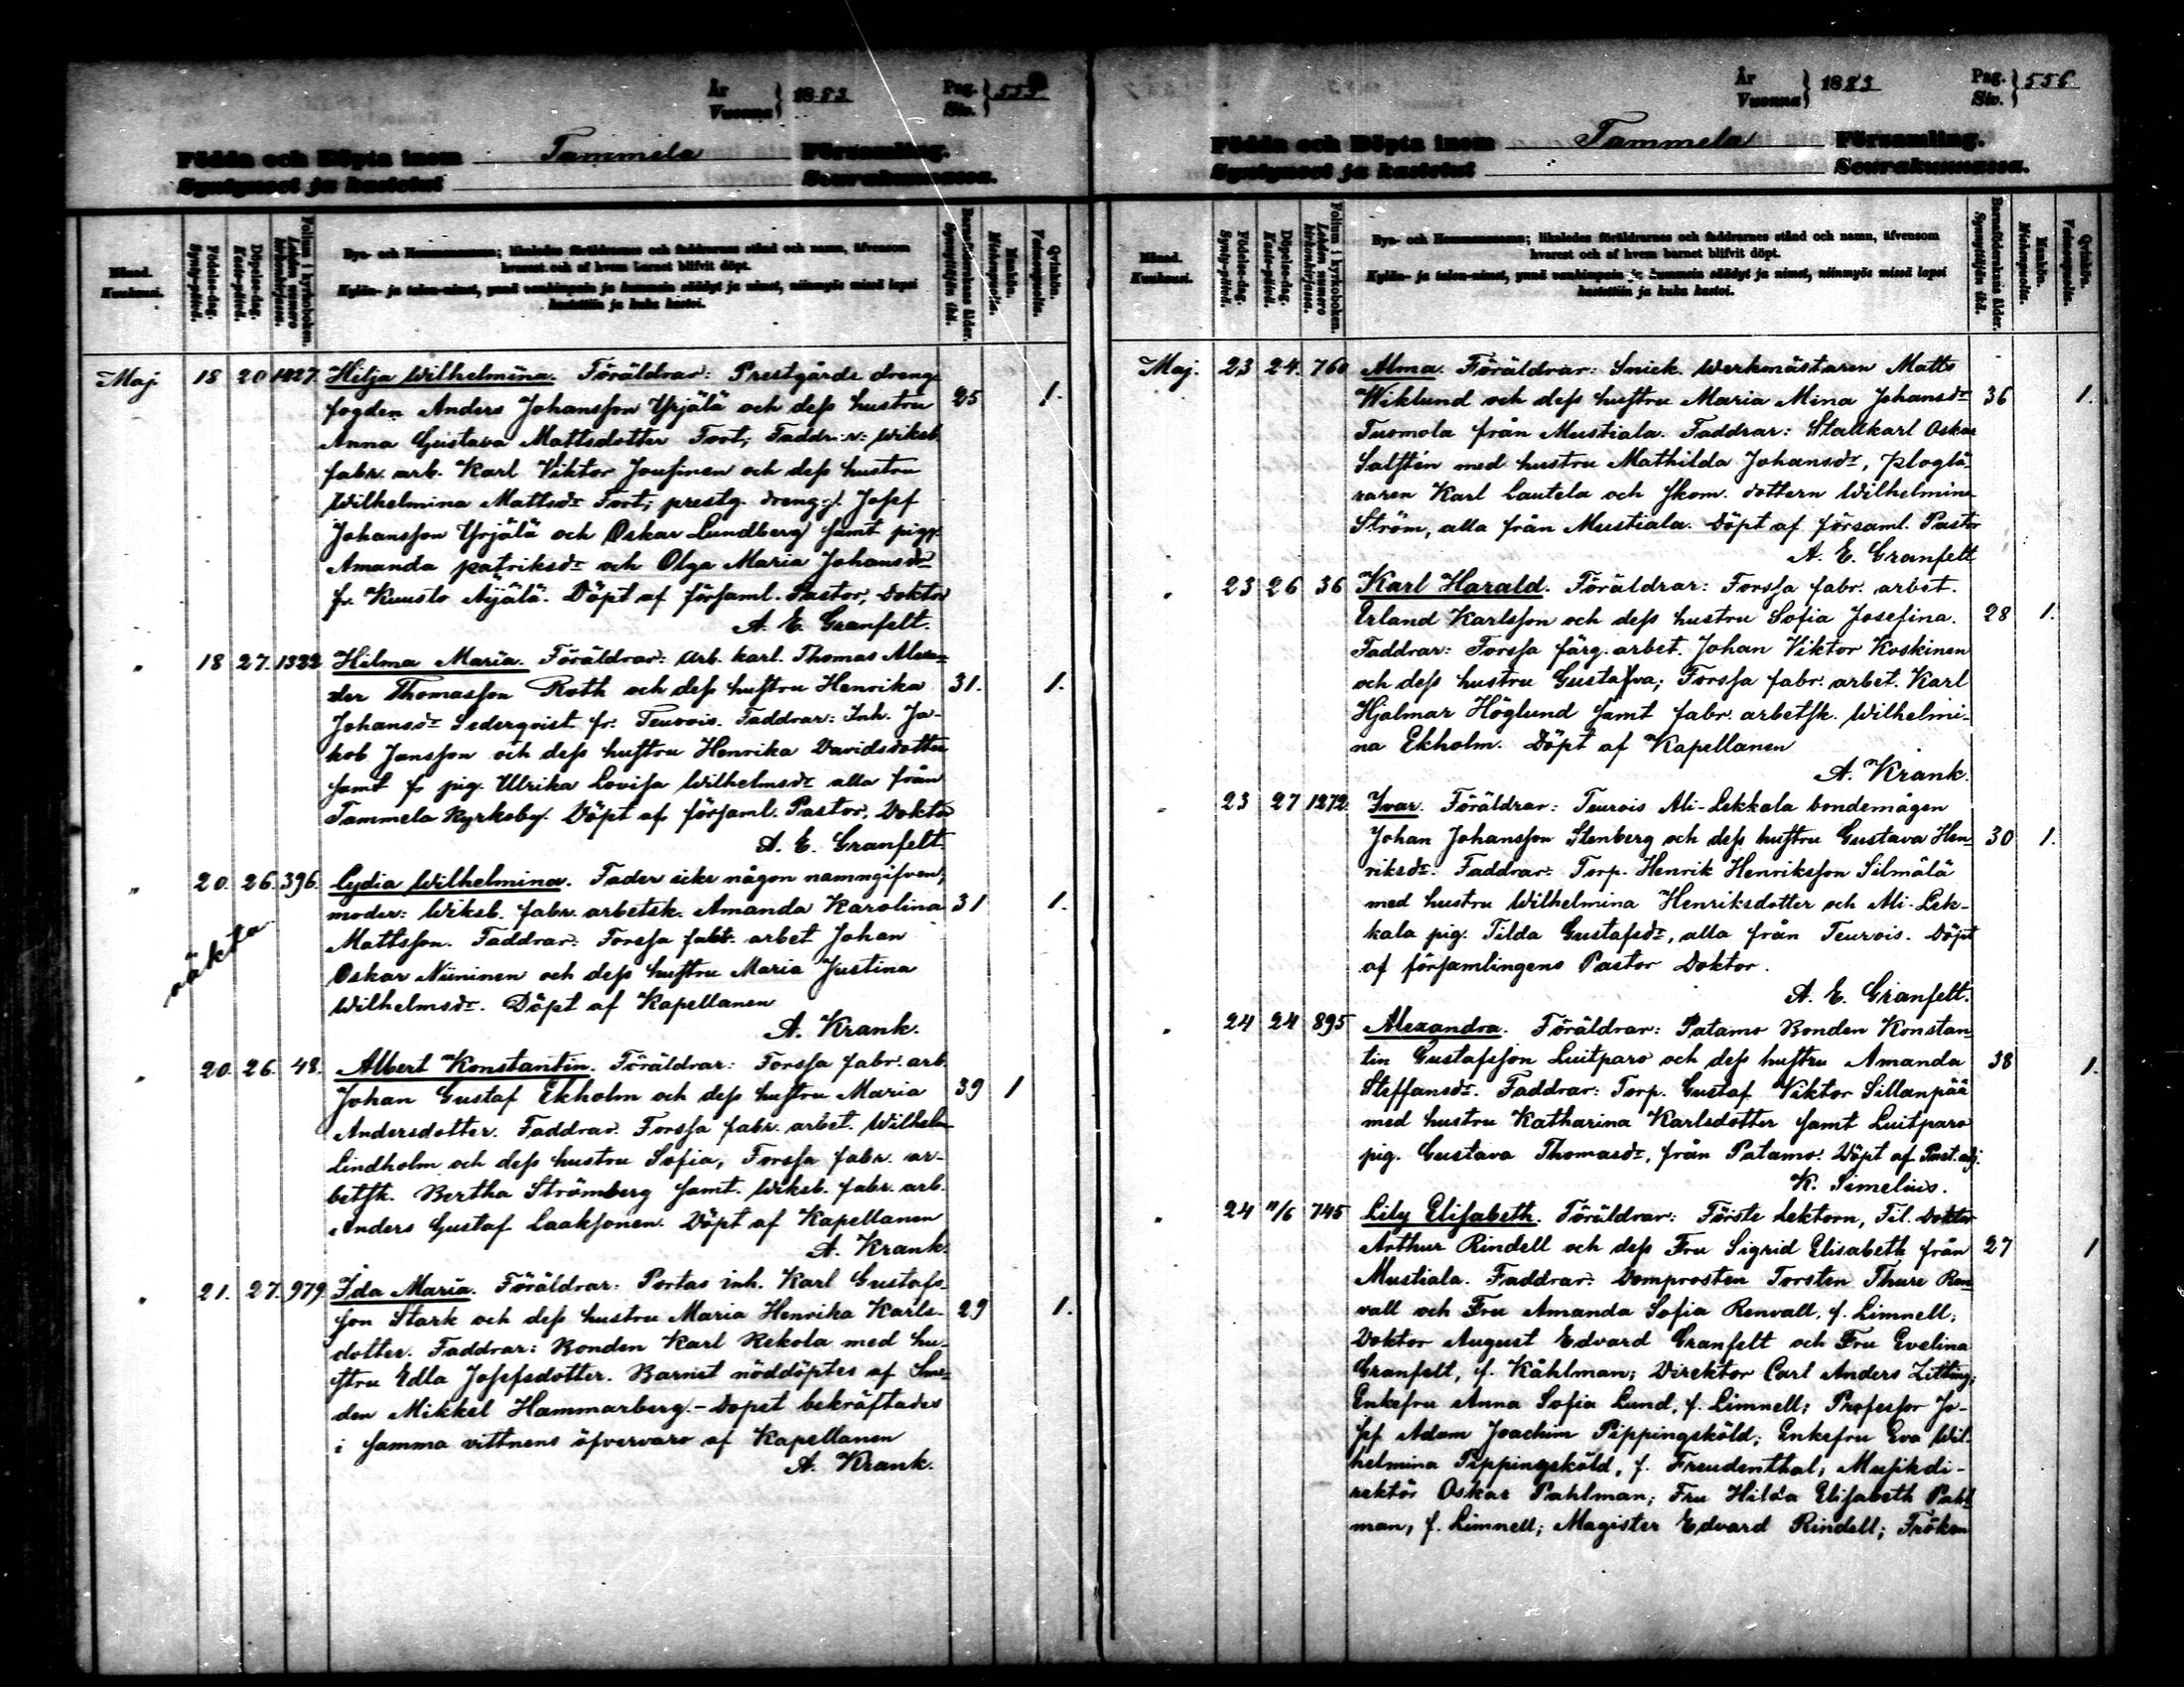 År
Vuonna } 1883 Pag.
Siv. } 555
Födda och Döpta inom Tammela Församling.
Syntyneet ja kastetut Seurakunnassa.
Månad.
Kuukausi.
Födelse-dag.
Synty-päivä.
Döpelse-dag.
Kaste-päivä.
Folium i kyrkoboken.
Lehden numero kirkonkirjassa.
Byn- och Hemmansnamn; likaledes föräldrarnes och faddrarnes stånd och namn, äfvensom
hvarest och af hvem barnet blifvit döpt.
Kylän- ja talon-nimet, ynnä vanhimpain ja kummein säädyt ja nimet, niinmyös missä lapsi
kastettiin ja kuka kastoi.
Barnaföderskans ålder.
Synnyttäjän ikä.
Mankön.
Miehenpuolia.
Qvinkön.
Vaimonpuolia.
Maj. 18 20 1427 Hilja Wilhelmina. Föräldrar: Prestgårds drengs
fogden Anders Johansson Yrjälä och dess hustru 25 1.
Anna Gustava Mattsdotter Tort; Faddr:r: Wiksb.
fabr. arb. Karl Viktor Jousinen och dess hustru
Wilhelmina Mattsdr Tort; prestg. dreng:r. Josef
Johansson Yrjälä och Oskar Lundberg samt pigr.
Amanda patriksdr och Olga Maria Johansdr
fr. Kuusto Äijälä. Döpt af församl. Pastor, Doktor
A. E. Granfelt.
" 18 27. 1322 Hilma Maria. Föräldrar: Arb. karl. Thomas Alexan-
der Thomasson Roth och dess hustru Henrika 31. 1.
Johansdr Sederqvist fr: Teurois. Faddrar: Inh. Ja-
kob Jansson och dess hustru Henrika Davidsdotter
samt fr pig. Ulrika Lovisa Wilhelmsdr alla från
Tammela Kyrkoby. Döpt af församl. Pastor, Doktor
A. E. Granfelt.
" 20. 26. 396. Lydia Wilhelmina. Fader icke någon namngifven,
moder: Wiksb. fabr. arbetsk. Amanda Karolina 31 1.
oäkta Mattsson. Faddrar: Forssa fabr. arbet Johan
Oskar Niininen och dess hustru Maria Justina
Wilhelmsdr. Döpt af Kapellanen
A. Krank.
" 20. 26. 48. Albert Konstantin. Föräldrar: Forssa fabr. arb.
Johan Gustaf Ekholm och dess hustru Maria 39 1
Andersdotter. Faddrar. Forssa fabr. arbet. Wilhelm
Lindholm och dess hustru Sofia, Forssa fabr. ar-
betsk. Bertha Strömberg samt. Wiksb. fabr. arb.
Anders Gustaf Laaksonen. Döpt af Kapellanen
A. Krank.
" 21. 27. 979. Ida Maria. Föräldrar: Portas inh. Karl Gustafs-
son Stark och dess hustru Maria Henrika Karls- 29 1.
dotter. Faddrar: Bonden Karl Rekola med hu-
stru Edla Josefsdotter. Barnet nöddöptes af Sme-
den Mikkel Hammarberg. - Dopet bekräftades
i samma vittnens öfvervaro af Kapellanen
A. Krank.
År
Vuonna } 1883 Pag.
Siv. } 556.
Födda och Döpta inom Tammela Församling.
Syntyneet ja kastetut Seurakunnassa.
Månad.
Kuukausi.
Födelse-dag.
Synty-päivä.
Döpelse-dag.
Kaste-päivä.
Folium i kyrkoboken.
Lehden numero kirkonkirjassa.
Byn- och Hemmansnamn; likaledes föräldrarnes och faddrarnes stånd och namn, äfvensom
hvarest och af hvem barnet blifvit döpt.
Kylän- ja talon-nimet, ynnä vanhimpain ja kummein säädyt ja nimet, niinmyös missä lapsi
kastettiin ja kuka kastoi.
Barnaföderskans ålder.
Synnyttäjän ikä.
Mankön.
Miehenpuolia.
Qvinkön.
Vaimonpuolia.
Maj. 23 24. 760 Alma. Föräldrar: Snick. Werkmästaren Matts
Wiklund och dess hustru Maria Mina Johansdr 36 1.
Tuomola från Mustiala. Faddrar: Stallkarl Oskar
Salstén med hustru Mathilda Johansdr, ploglä-
raren Karl Lautela och skom. dottern Wilhelmina
Ström, alla från Mustiala. Döpt af församl. Pastor
A. E. Granfelt
" 23 26 36 Karl Harald. Föräldrar: Forssa fabr. arbet.
Erland Karlsson och dess hustru Sofia Josefina. 28 1.
Faddrar: Forssa färg. arbet. Johan Viktor Koskinen
och dess hustru Gustafva; Forssa fabr. arbet. Karl
Hjalmar Höglund samt fabr. arbetsk. Wilhelmi-
na Ekholm. Döpt af Kapellanen
A. Krank.
" 23 27 1272. Ivar. Föräldrar: Teurois Ali-Lekkala bondemågen
Johan Johansson Stenberg och dess hustru Gustava Hen- 30 1.
riksdr. Faddrar: Torp. Henrik Henriksson Silmälä
med hustru Wilhelmina Henriksdotter och Ali-Lek-
kala pig. Tilda Gustafsdr, alla från Teurois. Döpt
af församlingens Pastor Doktor.
A. E. Granfelt.
" 24 24 895 Alexandra. Föräldrar: Patamo Bonden Konstan-
tin Gustafsson Luitparo och dess hustru Amanda 38 1.
Steffansdr. Faddrar: Torp. Gustaf Viktor Sillanpää
med hustru Katharina Karlsdotter samt Luitparo
pig. Gustava Thomasdr, från Patamo. Döpt af Past. adj.
K. Simelius.
" 24 11/6 745 Lily Elisabeth. Föräldrar: Förste Lektorn, Fil. Doktor
Arthur Rindell och dess Fru Sigrid Elisabeth från 27 1
Mustiala. Faddrar: Domprosten Torsten Thure Ren-
vall och Fru Amanda Sofia Renvall, f. Limnell;
Doktor August Edvard Granfelt och Fru Evelina
Granfelt, f. Kåhlman; Direktor Carl Anders Zitting;
Enkefru Anna Sofia Lund, f. Limnell; Professor Jo-
sef Adam Joachim Pippingsköld; Enkefru Eva Wil-
helmina Pippingsköld, f. Freudenthal; Musikdi-
rektör Oskar Pahlman; Fru Hilda Elisabeth Pahl-
man, f. Limnell; Magister Edvard Rindell; Fröken